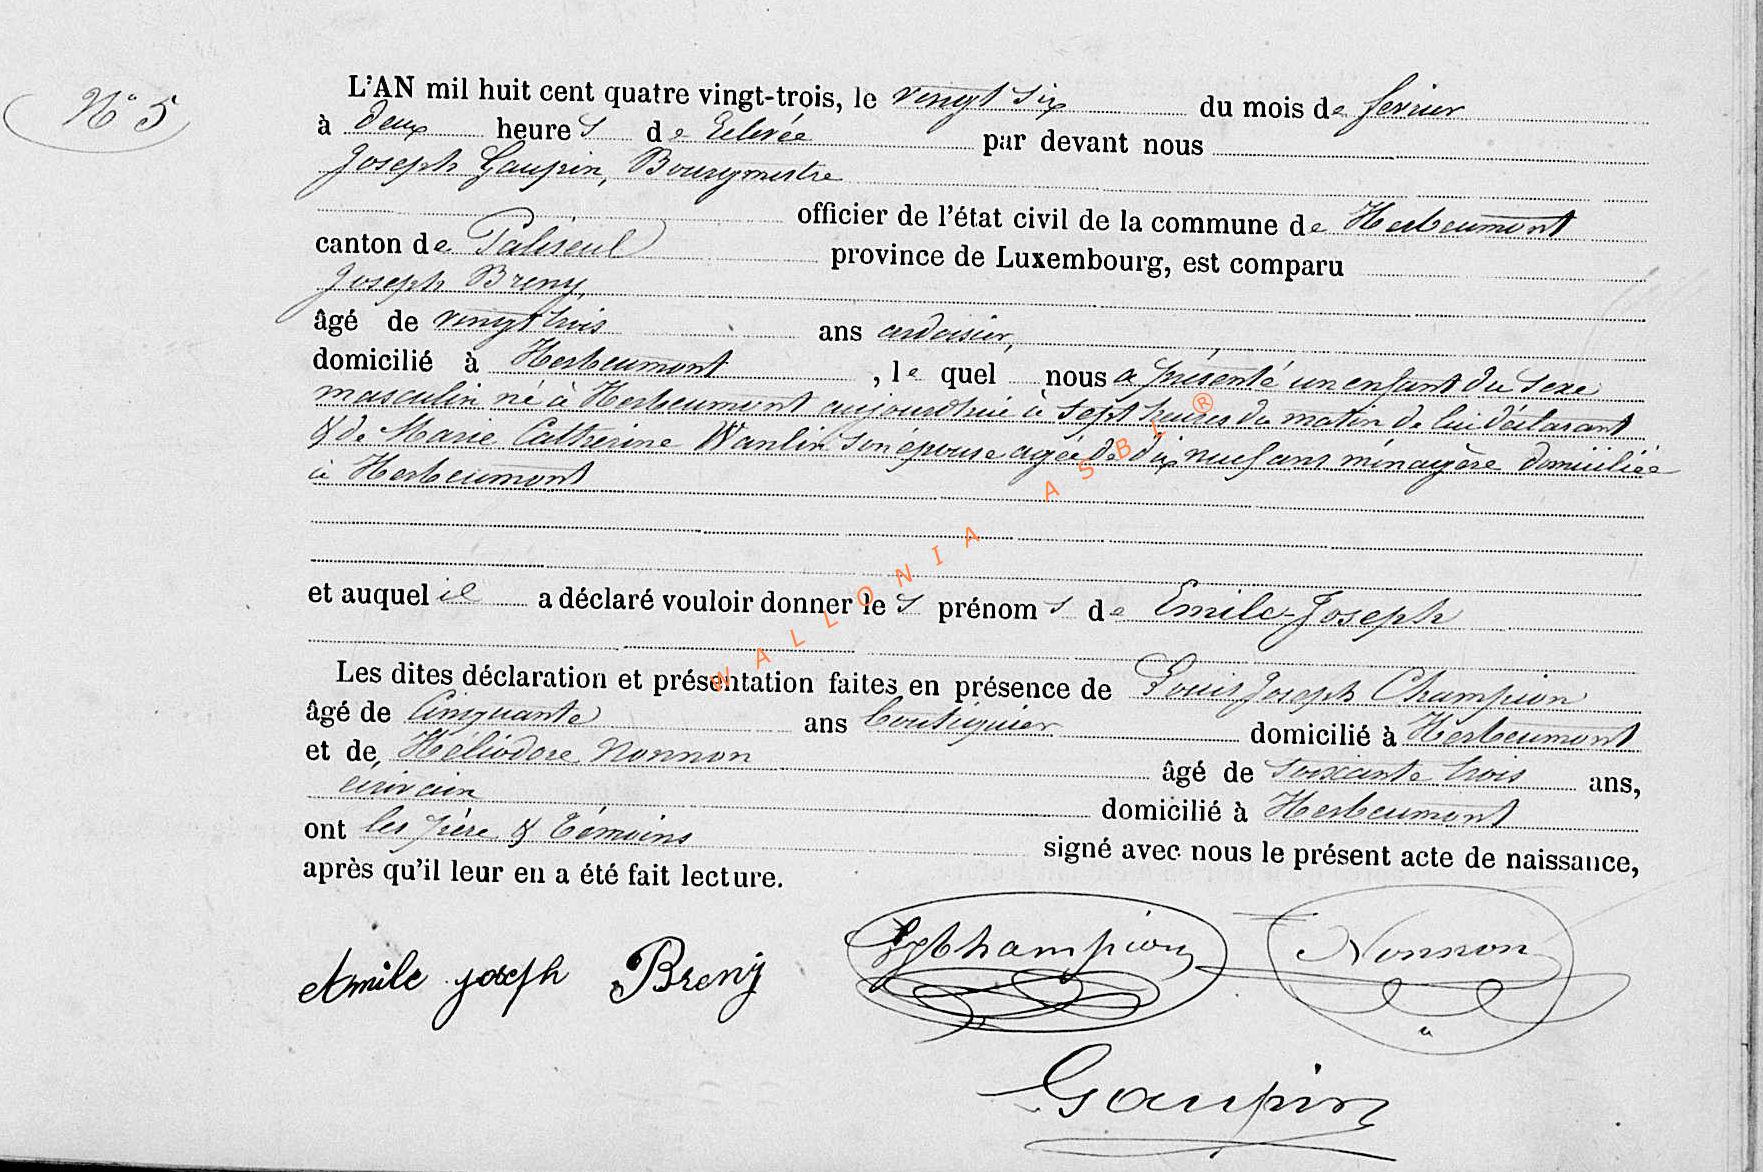 N° 5
L'AN mil huit cent quatre vingt-trois, le vingt six du mois de ferier
à deux heures de relevée par devant nous
Joseph Gaupin, Bourgmestre
officier de l'état civil de la commune de Herbeumont
canton de Paliseul province de Luxembourg, est comparu
Joseph Breny,
âgé de vingt trois ans ardoisier,
domicilié à Herbeumont, le quel nous a présenté un enfant du sexe
masculin né à Herbeumont aujourdhui à sept heures du matin de lui déclarant
& de Marie Catherine Wanlin son épouse agée de dix neuf ans ménagère domiciliée
à Herbeumont
et auquel il a déclaré vouloir donner les prénoms de Emile-Joseph
Les dites déclaration et présentation faites en présence de Louis Joseph Champion
âgé de Cinquante ans boutiquier domicilié à Herbeumont
et de Héliodore Nonnon âgé de soixante trois ans,
écrivain domicilié à Herbeumont
ont les père & témoins signé avec nous le présent acte de naissance,
après qu'il leur en a été fait lecture.
Amile joseph Breny Champion Nonnon
Gaupin
WALLONIA ASBL ®